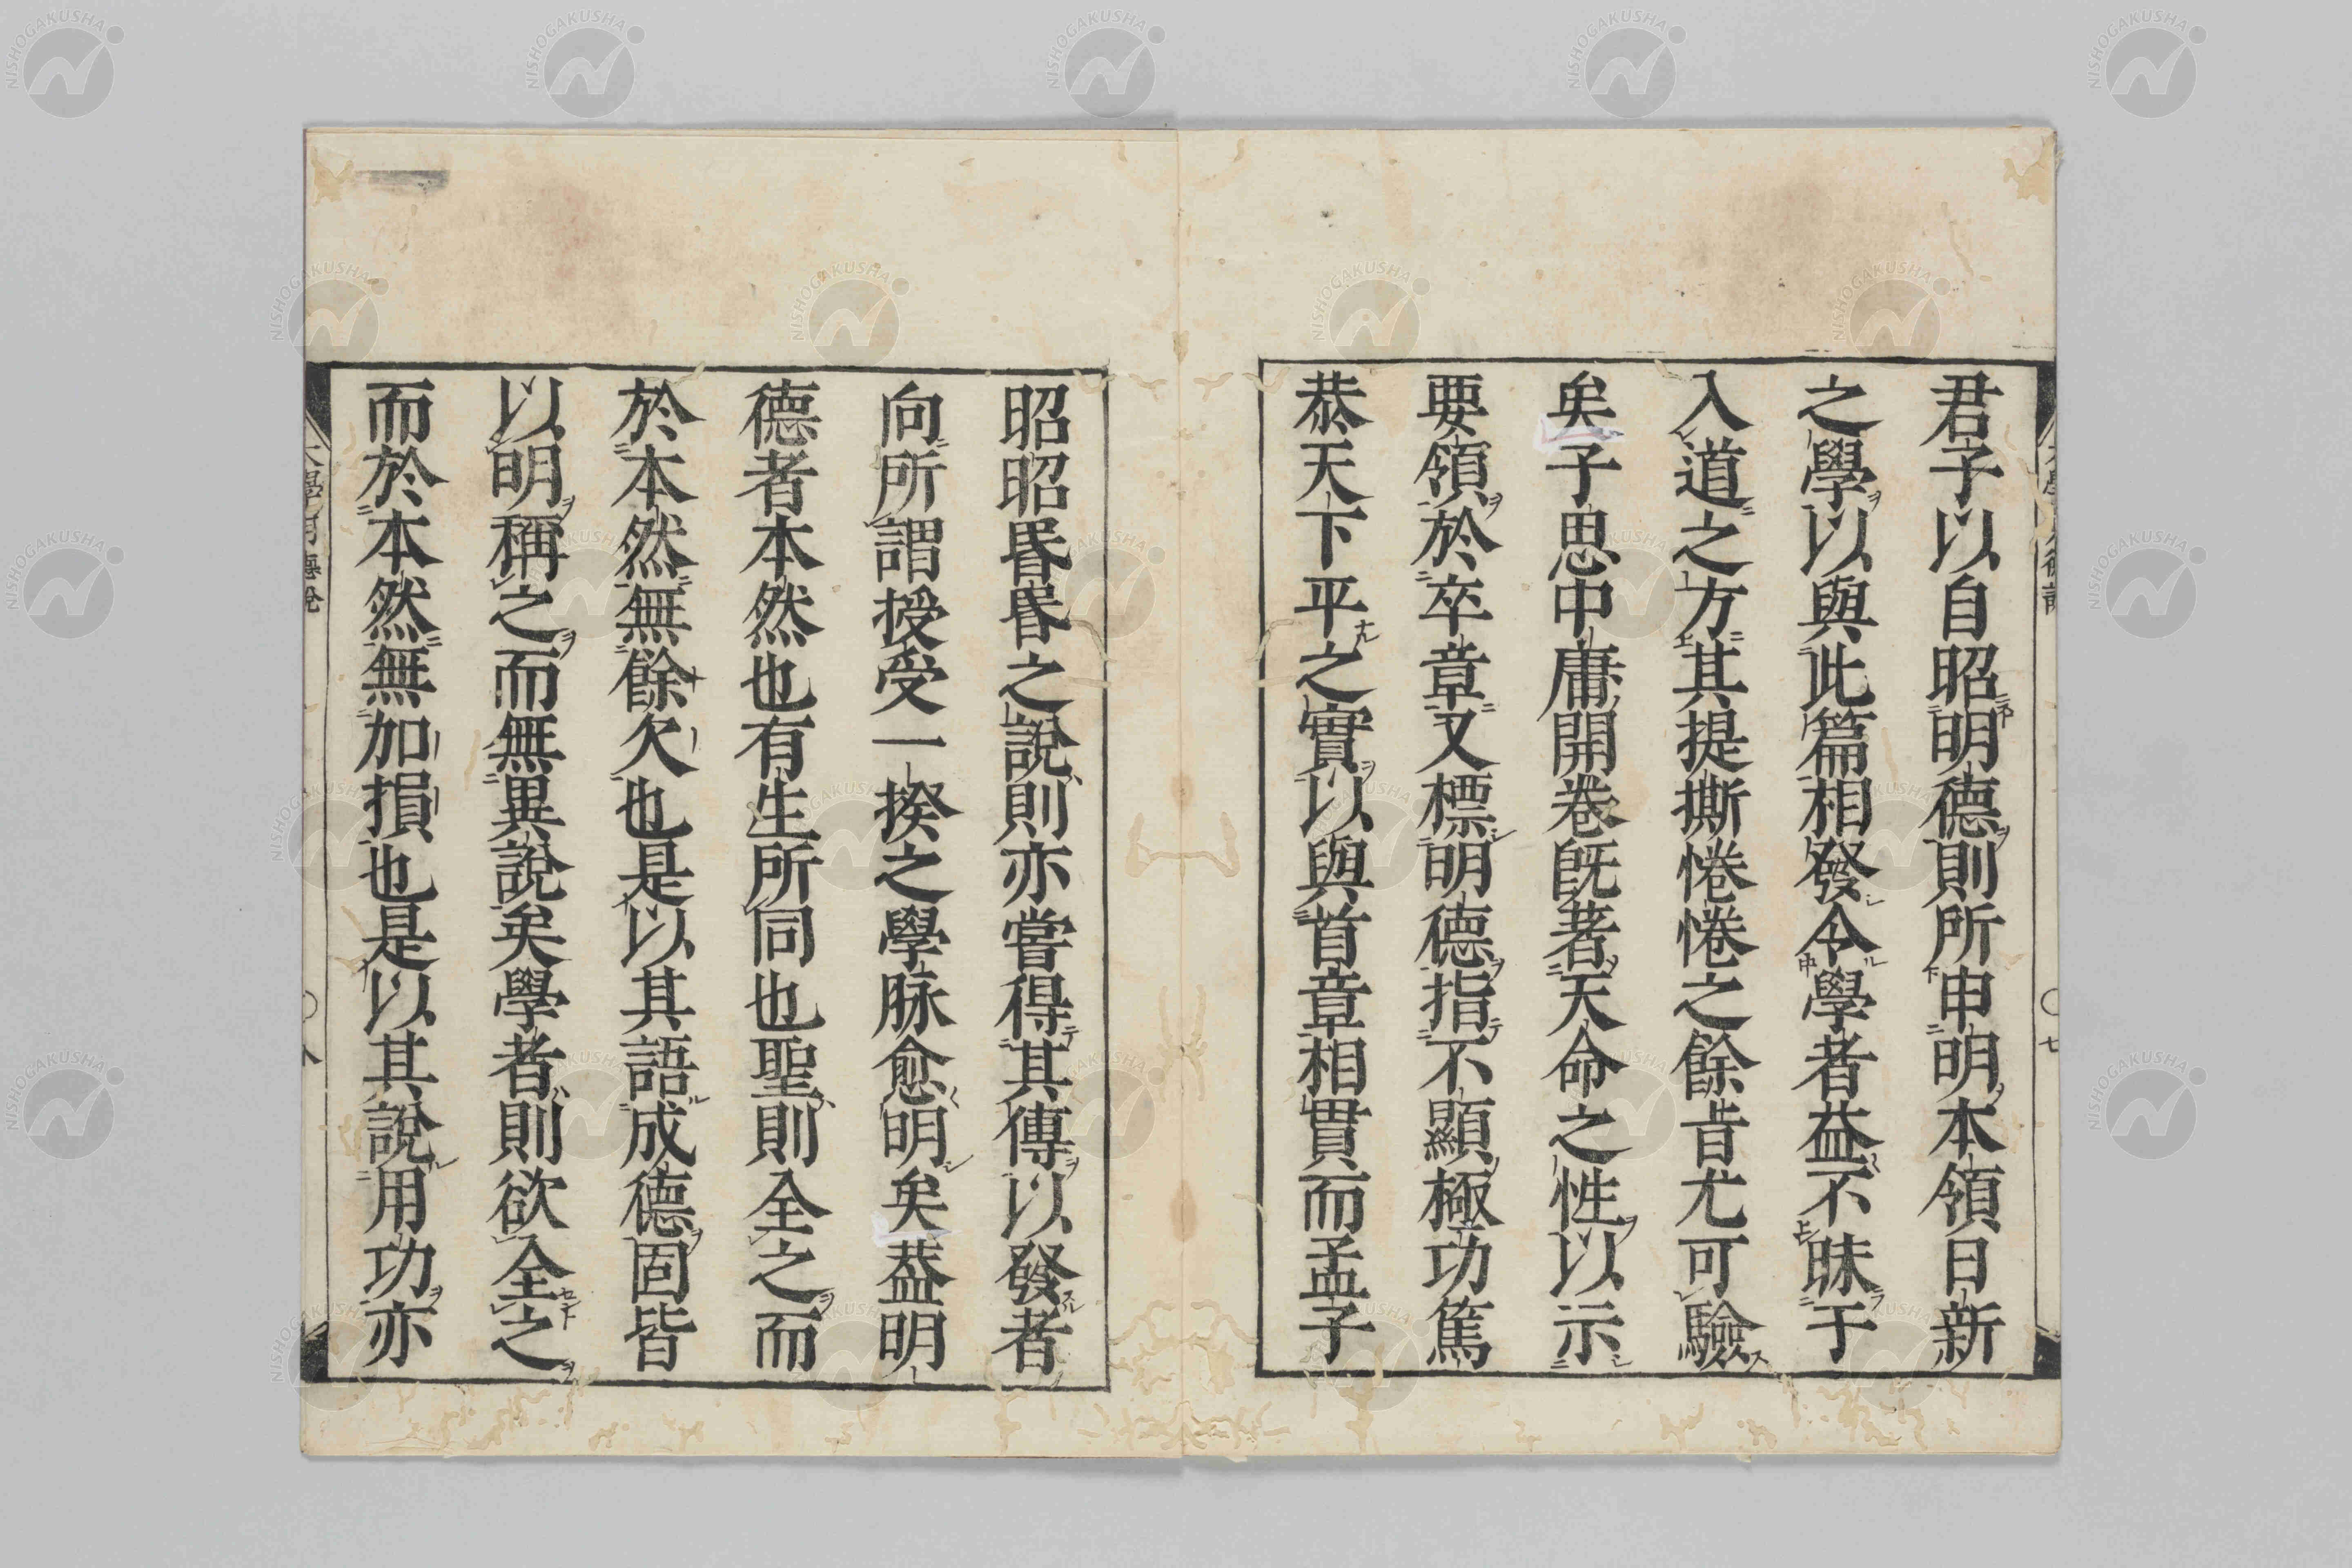 君子以自昭明德則所申明本領日新
之學以與此篇相發令學者益不昧于
入道之方其提撕惓惓之餘旨尤可驗
矣子思中庸開卷旣著天命之性以示
要領於卒章又標明德指不顯極功篤
恭天下平之實以與首章相貫而孟子
昭昭昬昬之說則亦嘗得其傳以發者
向所謂授受一揆之學脉愈明矣葢明
德者本然也有生所同也聖則全之而
於本然無餘欠也是以其語成德固皆
以明稱之而無異說矣學者則欲全之
而於本然無加損也是以其說用功亦